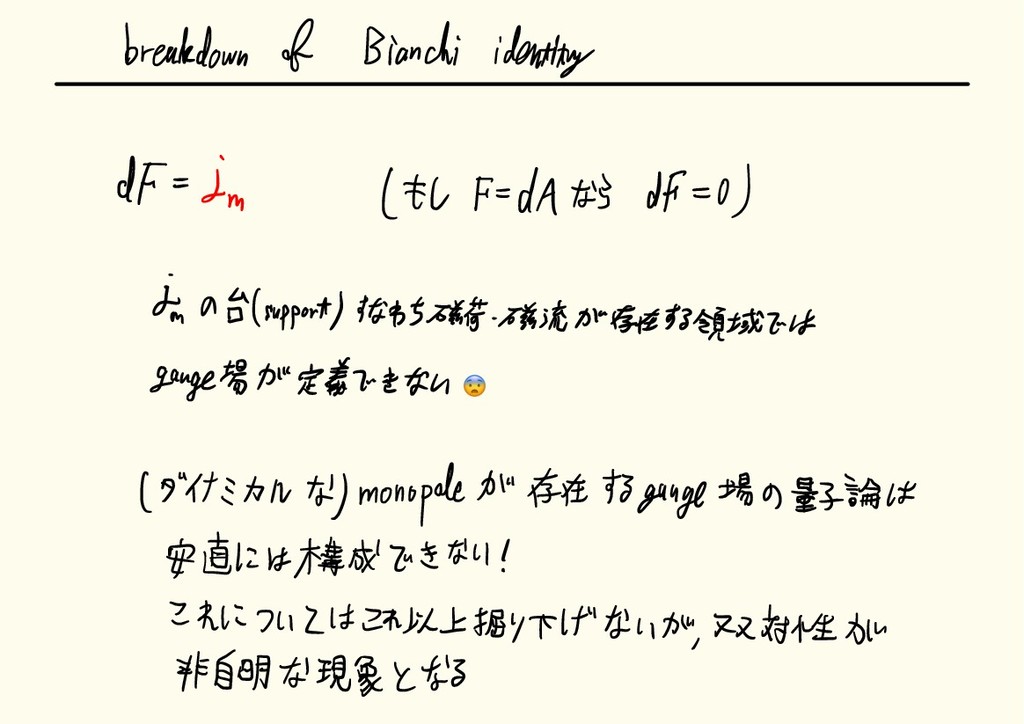 breakdown of Bianchi identity
dF = j_m (もし F=dA なら dF=0)
j_m の台(support)すなわち磁荷・磁流が存在する領域では
gauge場が定義できない😨
(ダイナミカルな)monopoleが存在するgauge場の量子論は
安直には構成できない!
これについてはこれ以上掘り下げないが,双対性が
非自明な現象となる